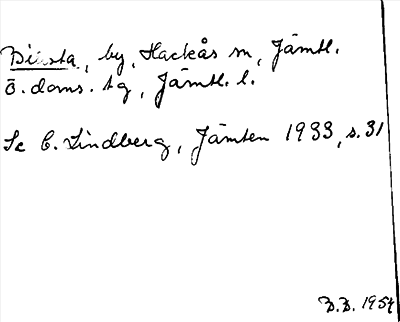 by, Hackås sn, Jämtl.
ö. doms. tg, Jämtl. l.
Se C. Lindberg, Jämten 1933, s. 31
B.B. 1954